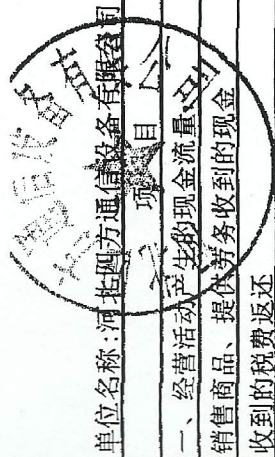 单位名称:河北四方通信设备有限公司
项目
一、经营活动产生的现金流量:
销售商品、提供劳务收到的现金
收到的税费返还